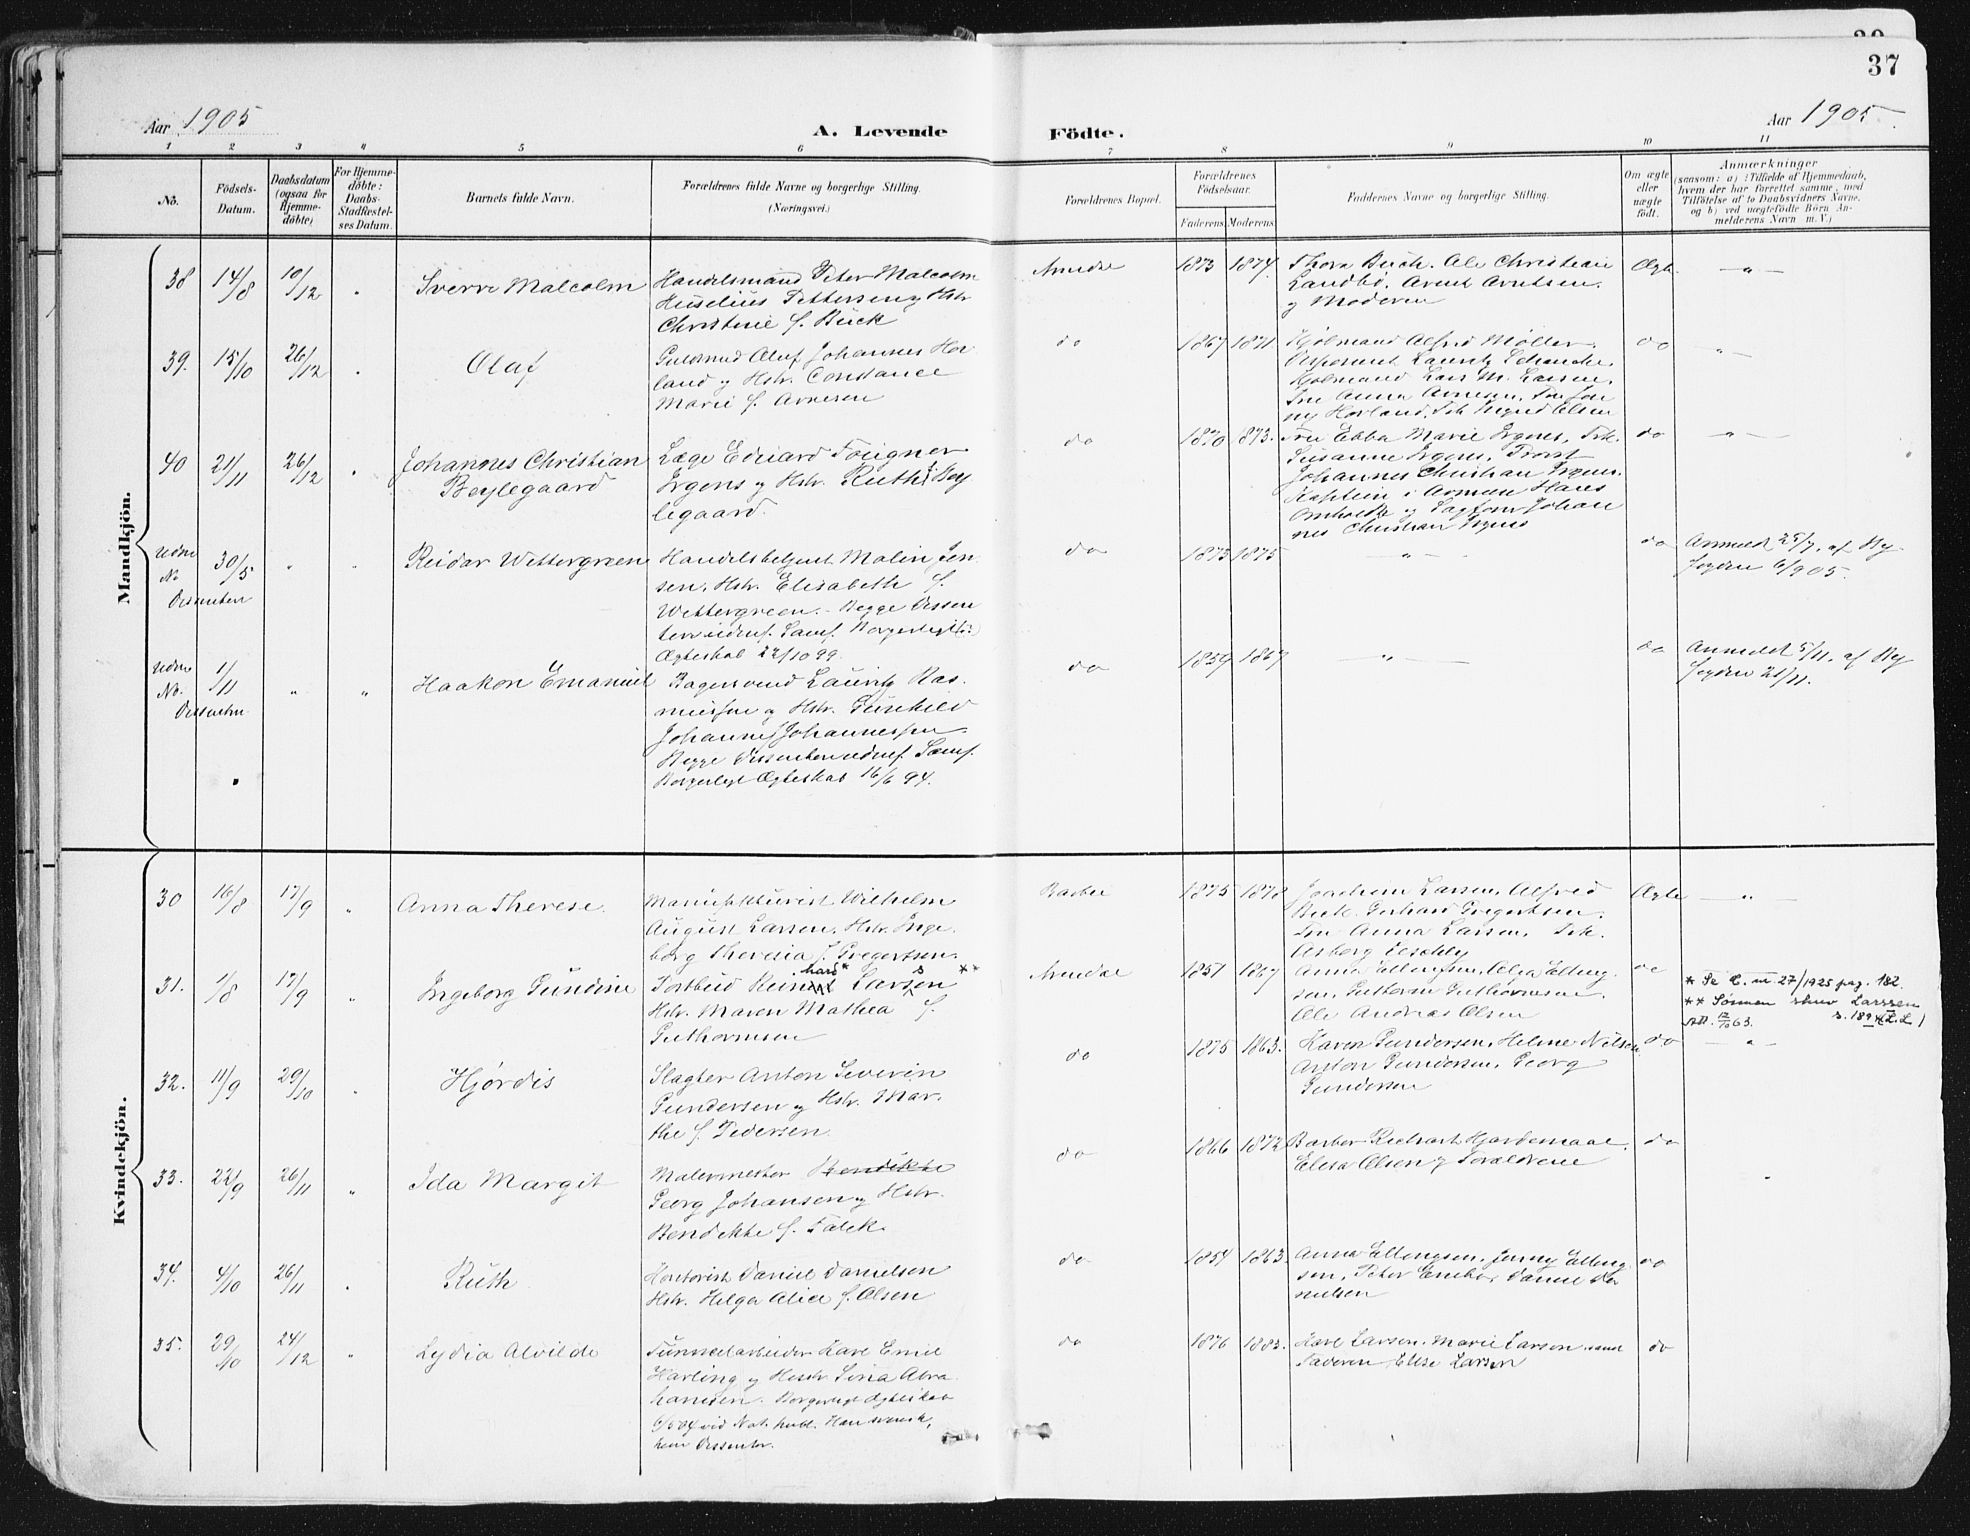 39
37
Aar 1905
A. Levende
Födte.
Aar 1905.
1 2 3 4 5 6 7 8 9 10 11
No.
Födsels-
Datum.
Daabsdatum
(ogsaa for
Hjemme-
döbte)
For Hjemme-
döbte:
Daabs-
Stadfæstel-
ses Datum.
Barnets fulde Navn.
Forældrenes fulde Navne og borgerlige Stilling.
(Næringsvei.)
Forældrenes Bopæl.
Forældrenes
Födselsaar.
Faderens Moderens
Faddernes Navne og borgerlige Stilling.
Om ægte
eller
uægte
födt.
Anmærkninger
(saasom: a) i Tilfælde af Hjemmedaab,
hvem der har forrettet samme, med
Tilföielse af to Daabsvidners Navne,
og b) ved uegtefödte Börn An-
melderens Navn m. V.)
Mandkjön.
38 14/8 10/12 " Sverre Malcolm
Handelsmand Peter Malcolm
Huselius Pettersen og Hstr
Christine f. Buck
Arendal 1873 1874.
Thora Buch. Ole Christian
Landbö, Arent Arntsen.
og Moderen
Ægte. — " —
39. 15/10 26/12 " Olaf
Guldsmed Oluf Johannes Hor
land og Hstr. Constance
Marie f. Arnesen
do 1867 1871
Kjölmand Alfred Möller.
Lauritz
Kjölmand Lars M. Larsen.
Fru Anna Arnesen,
ny Horland, Frk Ingrid Olsen
do — " —
40 21/11 26/12 " Johannes Christian
Beylegaard
Læge Edvard
Irgens og Hstr. Ruth f. Bey
legaard.
do 1870 1873.
Fru Ebba Marie Irgens, Frk.
Susanne Irgens, Provst
Johannes Christian Irgens.
Kaptein i Armeen Hans
og Sagförer Johan
nes Christian Irgens
do — " —
Uden
No
Dissenter
30/5 " " Reidar Wettergreen
Handelsbetjent Malin Jen
sen, Hstr. Elisabeth f.
Wettergreen. Begge Dissen
tere udenf. Samf. Borgerligt
Ægteskab 22/10 99.
do 1873 1875 — " —
do Anmeldt 25/7. af By
fogden 6/9 05.
Uden
No.
Dissenter
1/11 " " Haakon Emanuel
Bagersvend Lauritz Ras-
mussen og Hstr. Gunhild
Johanne f Johannessen
Begge Dissentere udenf Samf.
Borgerligt Ægteskab 16/6 94.
do 1859 1867 — " —
do Anmeldt 5/11. af By
fogden 21/11.
Kvindekjön.
30 16/8 17/9 " Anna Therese.
Manufakturist Wilhelm
August Larsen, Hstr. Inge
borg Theresia f. Gregertsen.
Barbu 1875 1878
Joachim Larsen, Alfred
Beck. Gerhard Gregertsen.
Fru Anna Larsen, Frk.
Asborg
Ægte — " —
31. 1/8 17/9 " Ingeborg Gundine
hard* s **
Postbud Larsen
Hstr. Maren Mathea f.
Guthormsen
Arendal 1857 1867
Anna Ellingsen, Olga Elling
sen, Guthorm Guthormsen.
Ole Andreas Olsen
do
* Se C. nr. 27/1925 pag. 182.
** Sönnen skrev Larssen
32. 11/9 29/10 " Hjördis
Slagter Anton Severin
Gundersen og Hstr. Mar-
the f. Pedersen
do 1875 1863.
Karen Gundersen, Helene Nilsen
Anton Gundersen, Georg
Gundersen
do — " —
33. 22/9 26/11 " Ida Margit
Malermester Bendikte
Georg Johansen og Hstr.
Bendikte f. Falck.
do 1866 1872
Barber Richard Hjardemaal.
Elisa Olsen og Forældrene
do
34. 4/10 26/11 " Ruth
Kontorist Daniel Danielsen
Hstr. Helga Alice f. Olsen
do 1854 1863.
Anna Ellingsen, Jenny Elling
sen, Peter Daniel Da
nielsen
do
35. 29/10 24/12 " Lydia Alvilde
Tunnelarbeider Karl Emil
Harling og Hustr Sina Abra
hamsen. Borgerligt Ægteskab
6/5 04 ved Not. publ. Han svensk,
hun Dissenter.
do 1876 1883.
Karl Larsen. Marie Larsen samt
Faderen, Elise Larsen
do